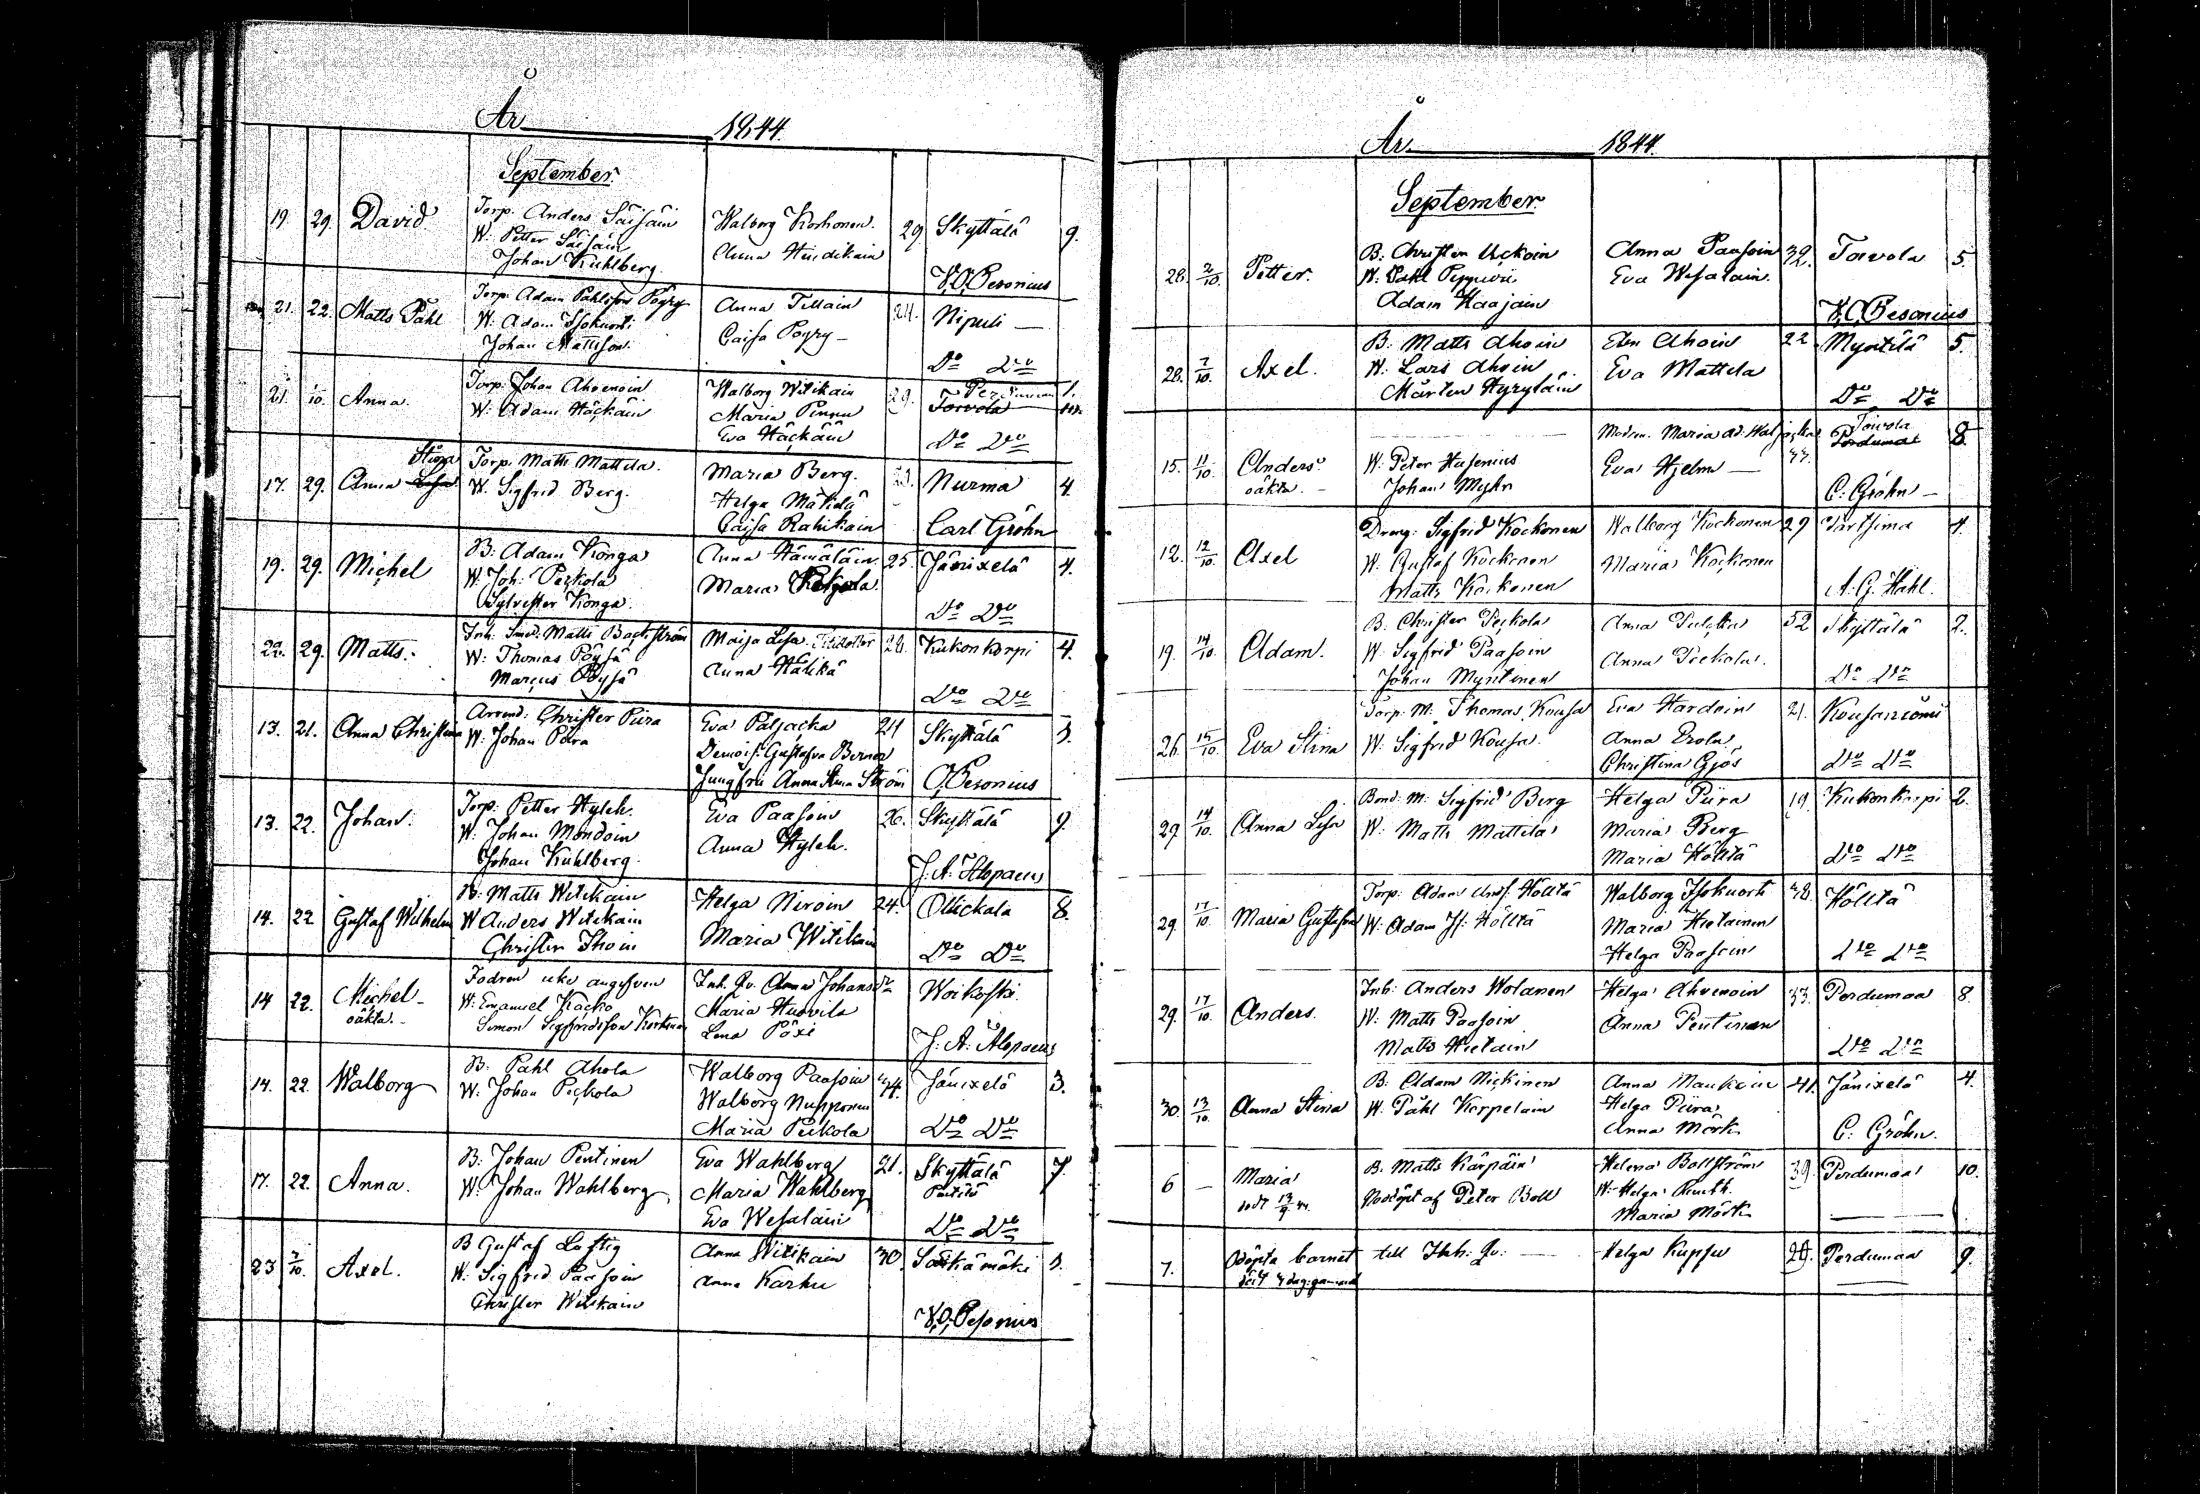 År 1844.
September.
19. 29. David Torp. Anders Säisäin Walborg Korhonen. 29 Skyttälä 9.
W: Petter Säisäin Anna Hindikain
Johan Kuhlberg. V. O. Pesonius
21. 22. Matts Påhl Torp: Adam Pahlsson Pöyry Anna Tillain 24. Nipuli —
W: Adam Caisa Pöyry —
Johan Mattsson. Do Do
21. 1/10. Anna. Torp. Johan Ahvenoin Walborg Witikain 29. 1.
W: Adam Häckäin Maria Pinnu Torvola
Eva Häckäin Do Do
17. 29. Anna Stina Torp. Matts Mattila. Maria Berg. Nurma 4.
W. Sigfrid Berg. Helga Mattila
Caisa Rahikain Carl Gröhn
19. 29. Michel B: Adam Konga Anna Hämäläin. 25. Jänixelä 4.
W: Joh: Peckola Maria
Sylvester Konga. Do Do
22. 29. Matts. Inh: Smed: Matts Backström Maja Lisa 28. Kukonkorpi 4.
W: Thomas Pöysä Anna
Marcus Pöysä Do Do
13. 21. Anna Christina Arrend: Christer Piira Eva Paljacka 24 Skyttälä
W: Johan Piira Demois: Gustafva Berner
Jungfru Anna Stina Ström O. Pesonius
13. 22. Johan. Torp: Petter Hyleh. Eva Paasoin 26. Skyttälä 9.
W. Johan Mondoin Anna Hyleh.
Johan Kuhlberg. J: A: Alopaeus
14. 22 Gustaf Wilhelm B: Matts Witikain Helga Niroin 24. Ollickala 8.
W Anders Witikain Maria Witikain
Christer Ihoin Do Do
14 22. Michel Fadren icke angifven Inh. Qv. Anna Johansdr Woikoski
oäkta. W: Emanuel Kacko Maria Huovila
Simon Sigfridsson Lena Pöxi J: A: Alopaeus
14. 22. Walborg B. Pahl Ahola Walborg Paasoin 44. Jänixelä 3.
W. Johan Peckola Walborg Nupponen
Maria Peckola Do Do
17. 22. Anna. B: Johan Pentinen Eva Wahlberg 21. Skyttälä 7.
W. Johan Wahlberg Maria Wahlberg Pentilä
Eva Wesalain Do Do
23 7/10. Axel. B Gustaf Loftig Anna Witikain 30.
W. Sigfrid Paasoin Anna Karhu
Christer Witikain V. O. Pesonius
År 1844.
September.
28. 2/10. Petter. B: Christer Uckoin Anna Paasoin 32. Torvola 5.
W. Pahl Eva Wesalain.
Adam Haajain V. O. Pesonius
28. 7/10. Axel. B: Matts Ahoin Ahoin 22 Myntilä 5.
W: Lars Ahoin Eva Mattila
Mårten Hyryläin Do Do
15. 11/10. Anders. Maria Torvola 8.
oäkta. — W. Peter Husenius Eva Hjelm — Perdumaa
Johan Myhr C. Gröhn —
12. 12/10. Axel Dreng: Sigfrid Kockonen Walborg Kockonen 29 4.
W. Gustaf Kockonen Maria Kockonen
Matts Kockonen A. G. Hahl.
19. 14/10. Adam. B. Christer Peckola Anna 32 Skyttälä 2.
W. Sigfrid Paasoin Anna Peckola.
Johan Myntinen Do Do
26. 15/10. Eva Stina Torp. M: Thomas Kousa Eva Hardoin 21. Kousaniemi
W. Sigfrid Kousa. Anna Erola
Christina Gjös Do Do
29. 14/10. Anna Lisa Bond: M: Sigfrid Berg Helga Piira 19. Kukonkorpi 2.
W. Matts Mattila Maria Berg
Maria Hölttä Do Do
29. 17/10. Maria Gustafva Torp: Adam Hölttä Walborg 38. Hölttä
W. Adam Hölttä Maria Hietainen
Helga Paasoin Do Do
29. 17/10. Anders. Inh: Anders Wolanen Helga Ahvenoin 33. Perdumaa 8.
W. Matts Paasoin Anna Pentinen
Matts Hietain Do Do
30. 13/10. Anna Stina B. Adam Nickinen Anna Maukoin 41. Jänixelä 4.
W. Påhl Korpelain Helga Piira
Anna Mörk C: Gröhn.
6 — Maria B. Matts Kärpäin Helena Bollström 39. Perdumaa 10.
död 13/9 44. Nöddöpt af Peter Boll W. Helga
Maria Mörk
7. Odöpta barnet till Inh: Qv: — Helga Kupsu 28. Perdumaa 9.